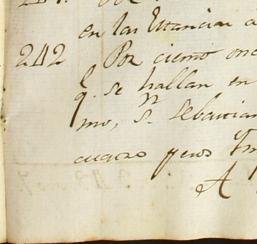 en las Estancias a
242 Por ciento onc
q. se hallan en
mo, Sn. Sebastian
cuatro pesos
A